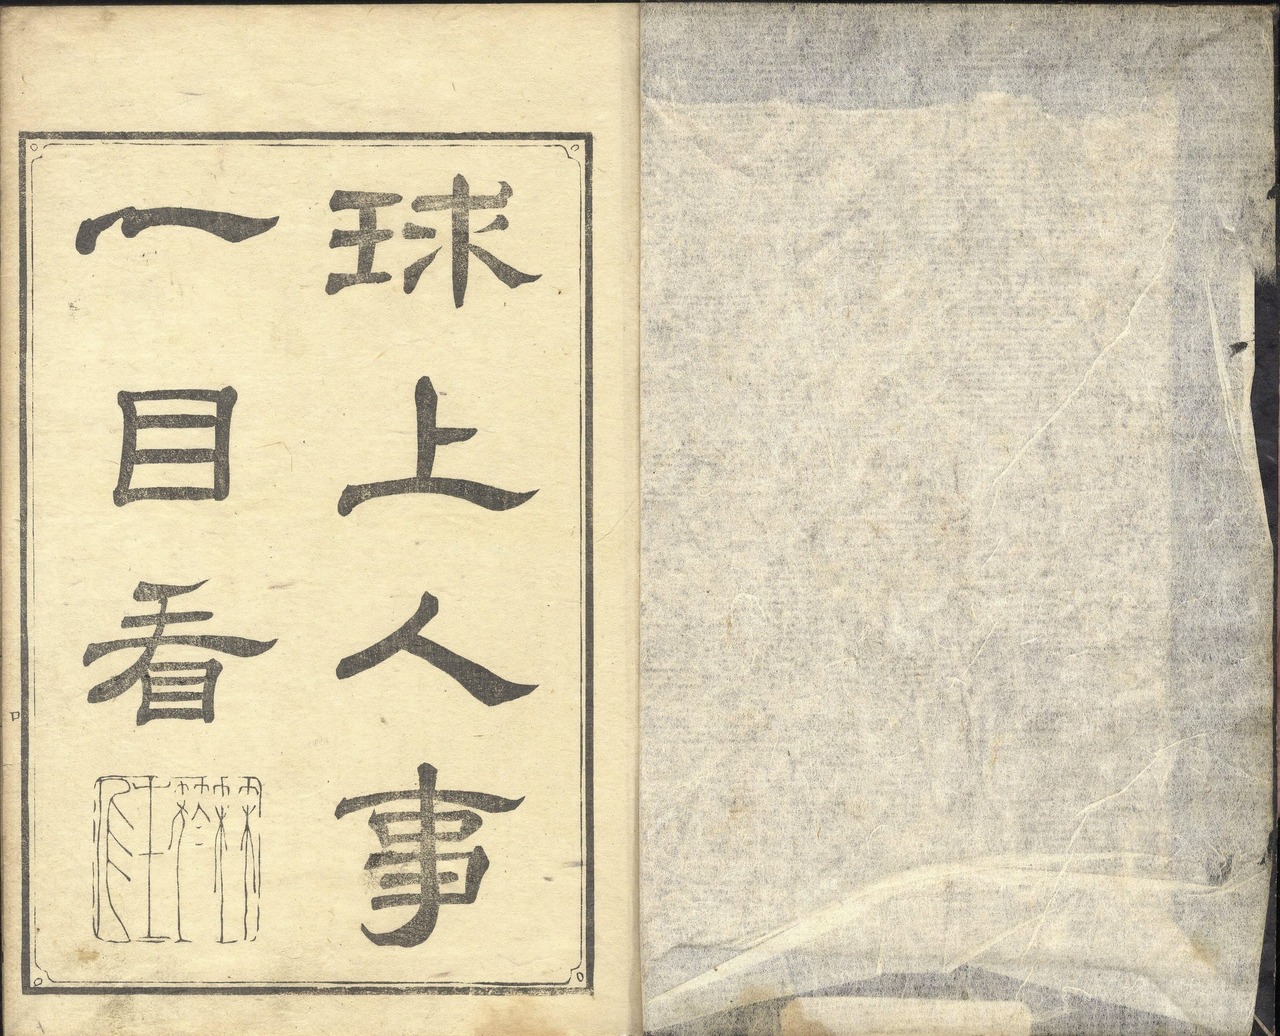 球上人事
一目看